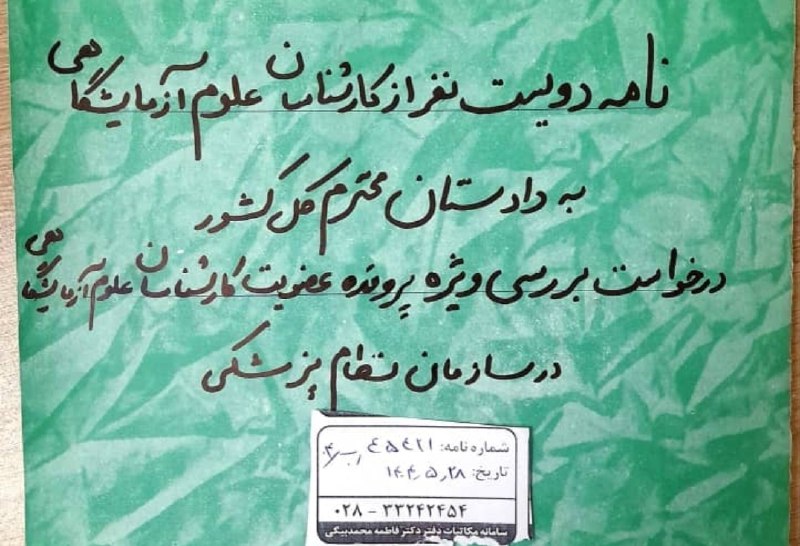 نامه دویست نفر از کارشناسان علوم آزمایشگاهی
به دادستان محترم کل کشور
درخواست بررسی ویژه پرونده عضویت کارشناسان علوم آزمایشگاهی
در سازمان نظام پزشکی
شماره نامه: ۴۵۴۲۱
تاریخ: ۱۴۰۴٫۵٫۲۸
۰۲۸ - ۳۳۲۴۲۴۵۴
سامانه مکاتبات دفتر دکتر فاطمه محمدبیگی